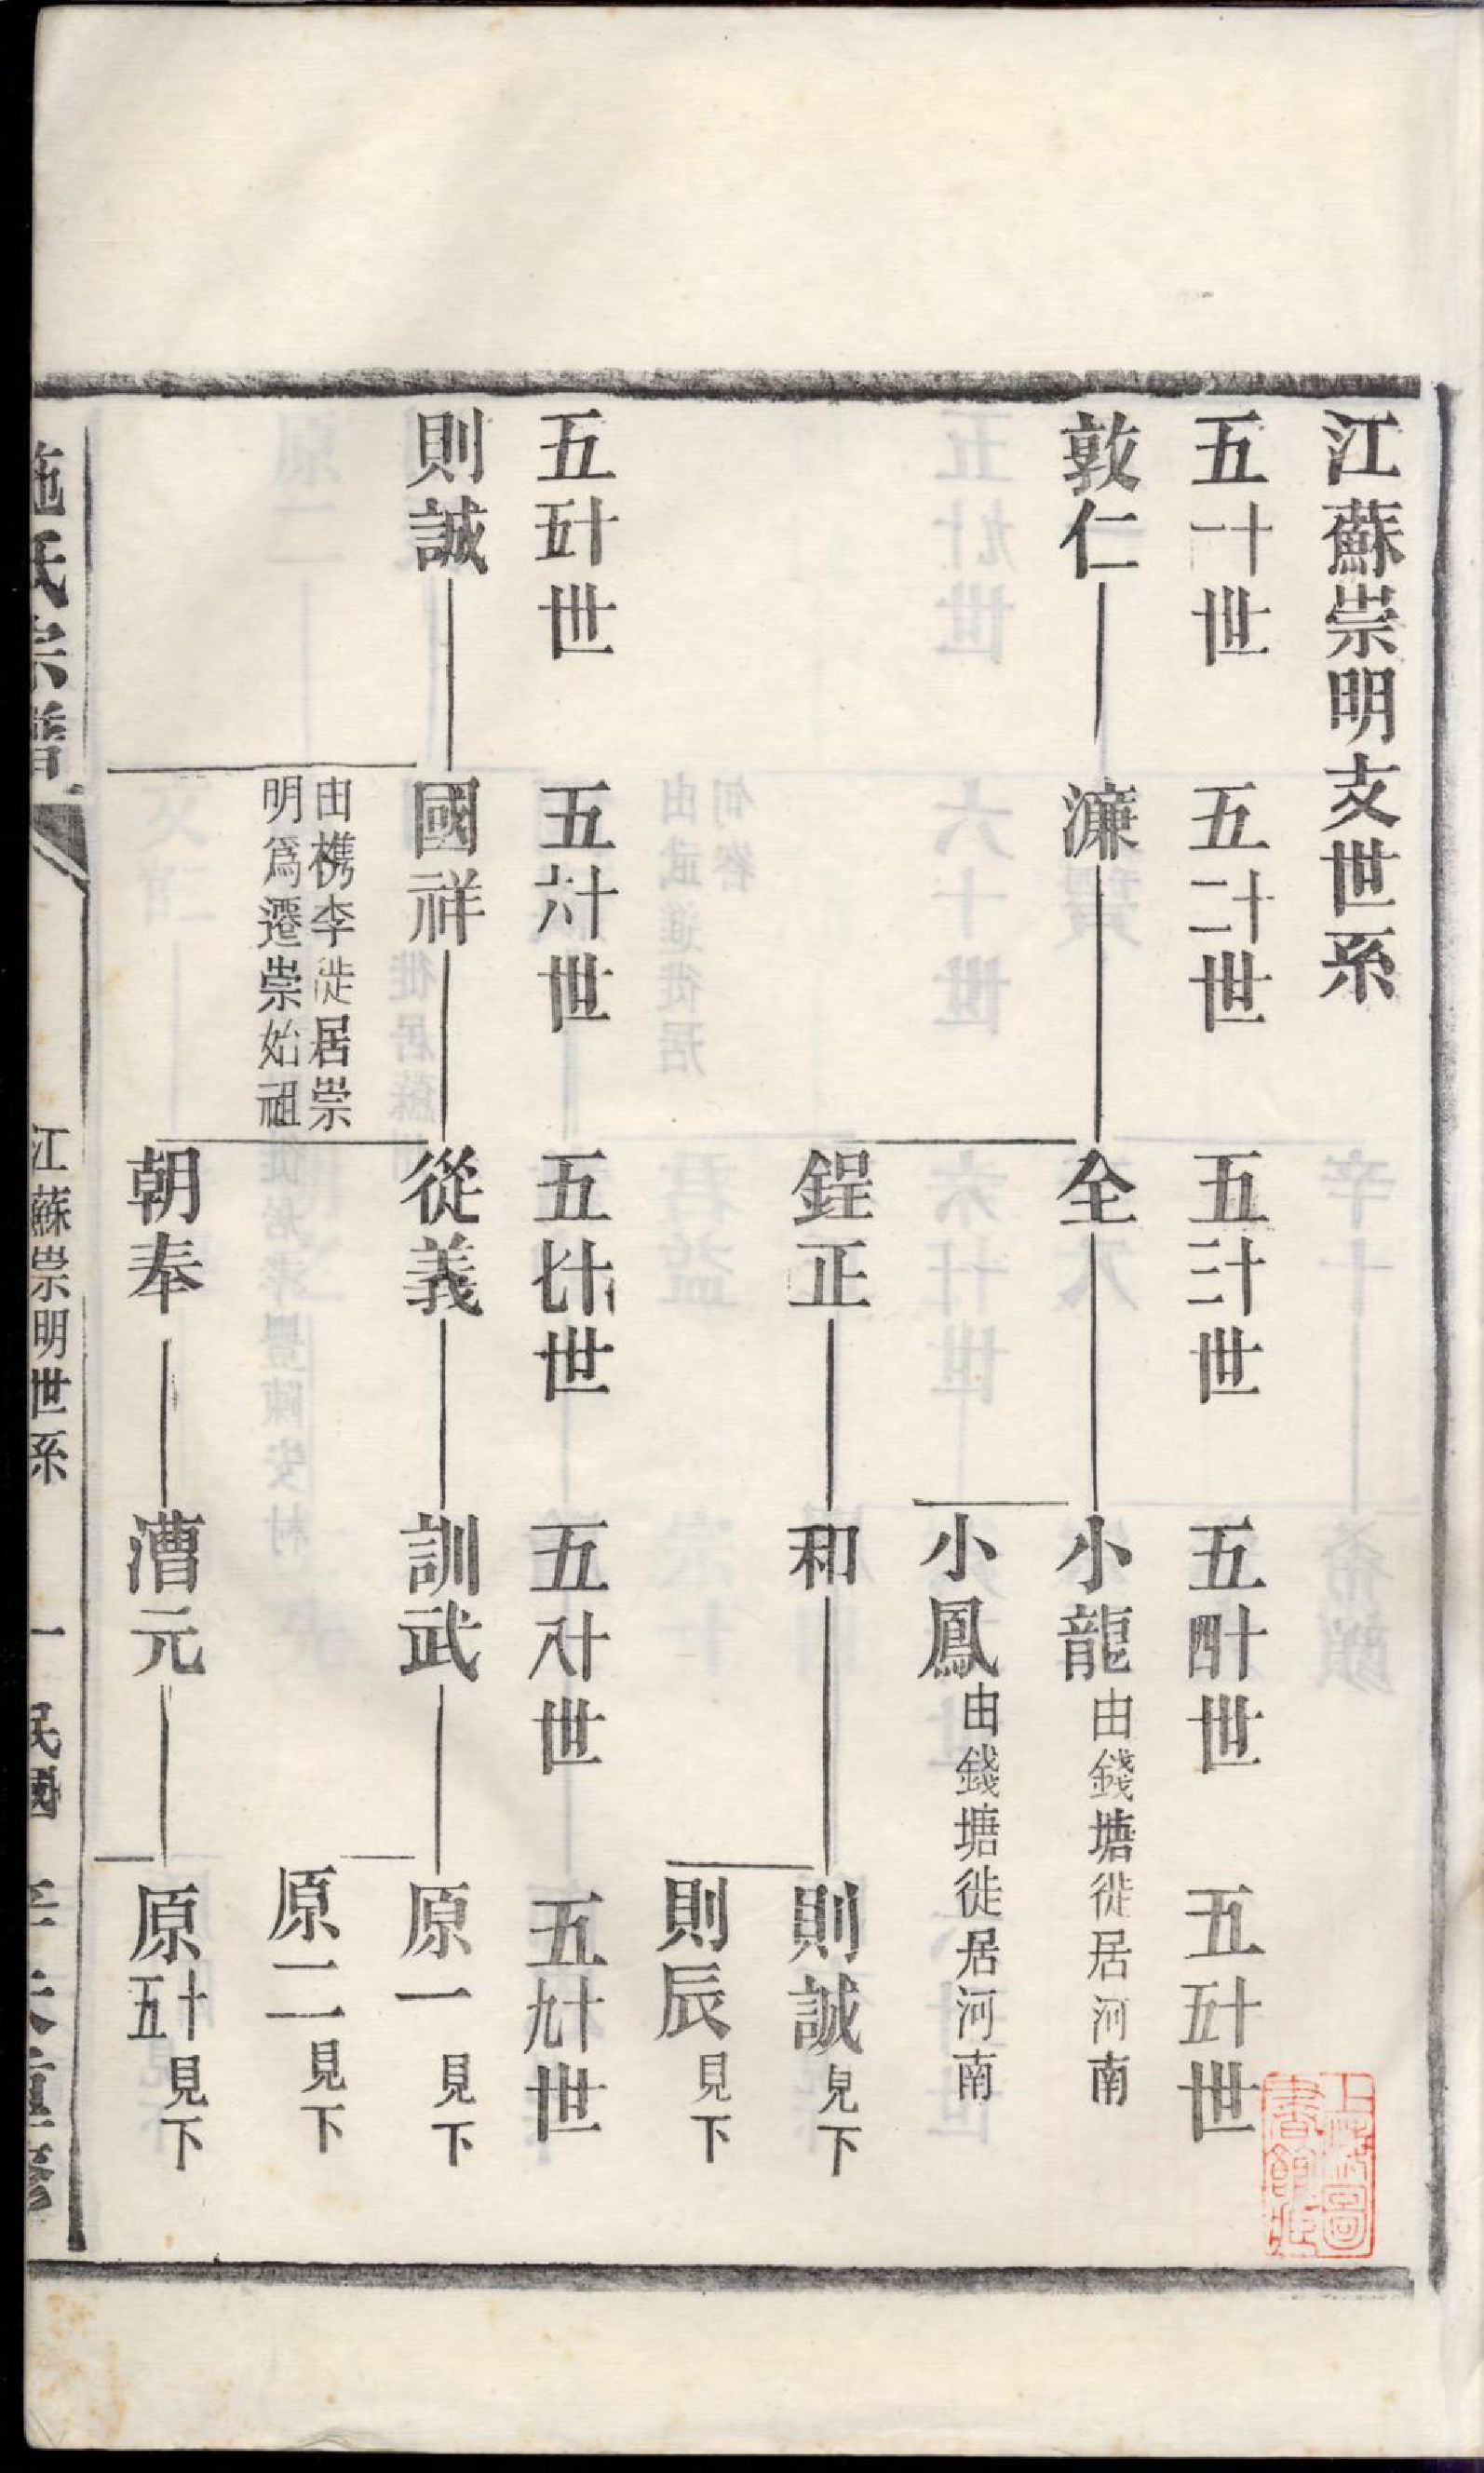 江蘇崇明支世系
五十一世 五十二世 五十三世 五十四世 五十五世
敦仁 濂 全 小龍 由錢塘徙居河南
小鳳 由錢塘徙居河南
鋥正 和 則誠 見下
則辰 見下
五十五世 五十六世 五十七世 五十八世 五十九世
則誠 國祥 從義 訓武 原一 見下
由檇李徙居崇
明爲遷崇始祖
原二 見下
朝奉 漕元 原十五 見下
施氏宗譜 江蘇崇明世系 一 民國
上海圖
書館藏